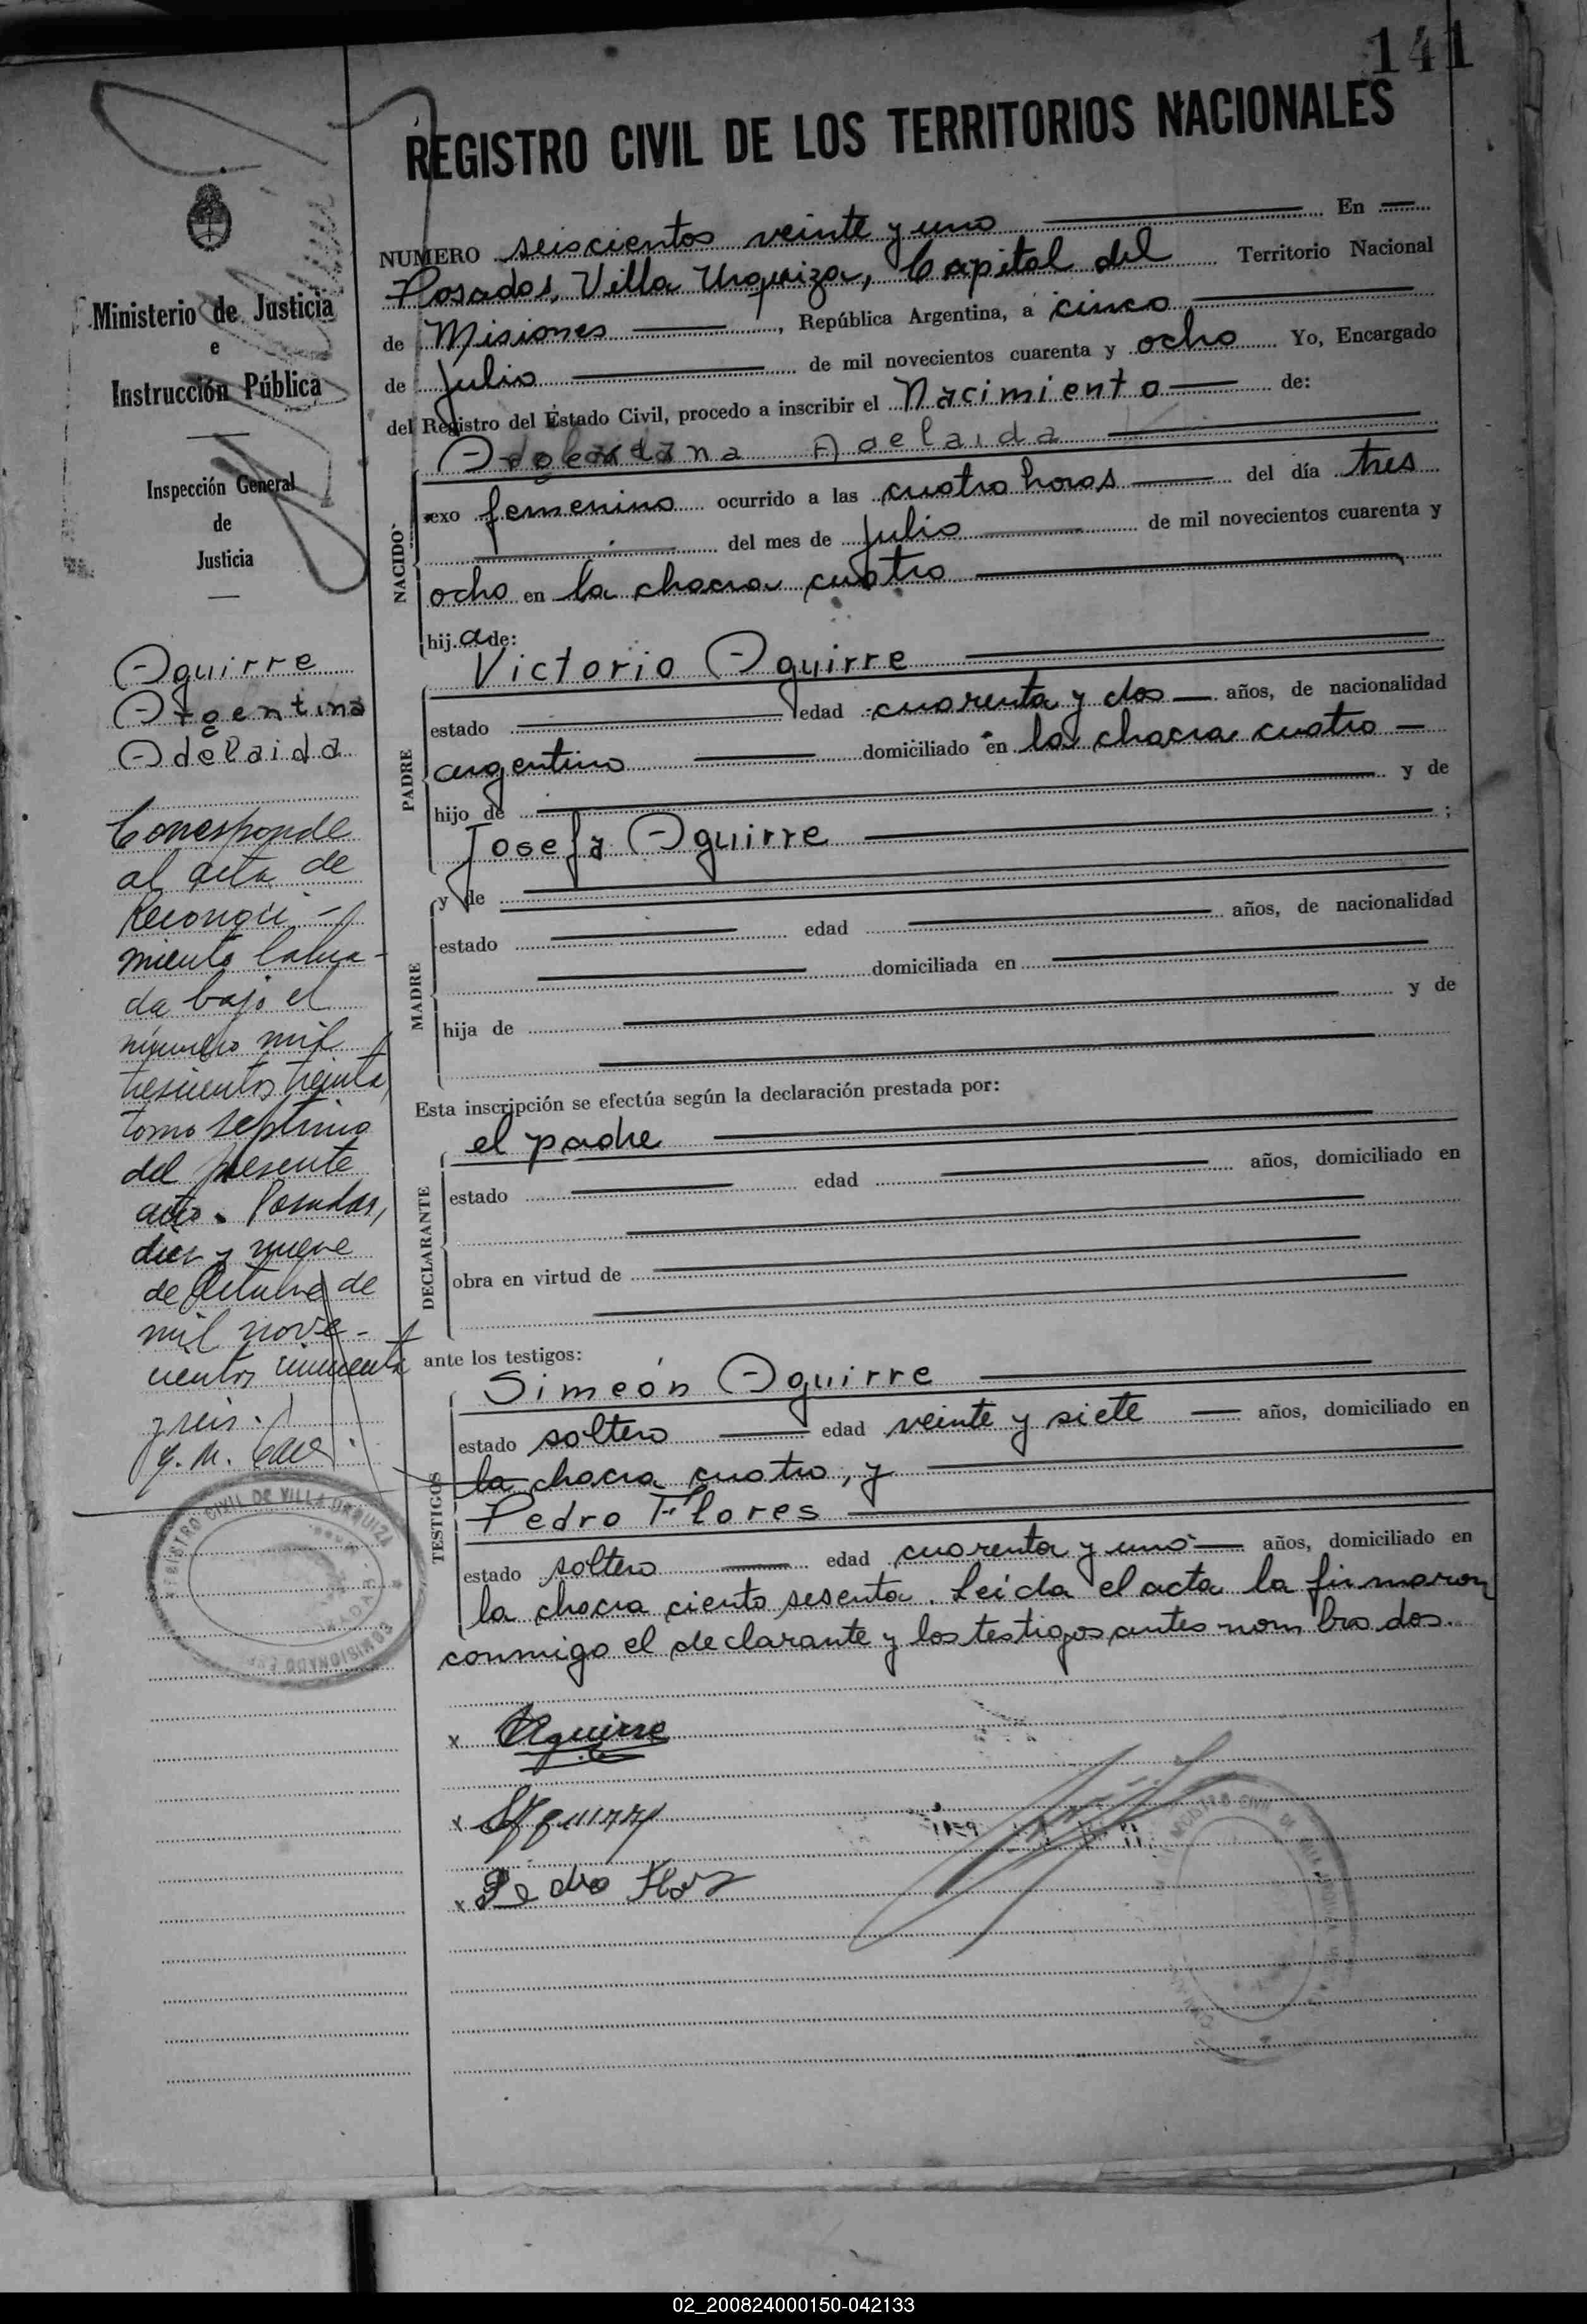 141
REGISTRO CIVIL DE LOS TERRITORIOS NACIONALES
NUMERO seiscientos veinte y uno En
Posadas, Villa Urquiza, Capital del Territorio Nacional
de Misiones, República Argentina, a cinco
de Julio de mil novecientos cuarenta y ocho Yo, Encargado
del Registro del Estado Civil, procedo a inscribir el Nacimiento de:
Adelaida
NACIDO
sexo femenino ocurrido a las cuatro horas del día tres
del mes de Julio de mil novecientos cuarenta y
ocho en la chacra cuatro
hij a de:
PADRE
Victorio Aguirre
estado edad cuarenta y dos años, de nacionalidad
argentino domiciliado en la chacra cuatro
hijo de y de
Josefa Aguirre ;
MADRE
y de
estado edad años, de nacionalidad
domiciliada en
hija de y de
Esta inscripción se efectúa según la declaración prestada por:
DECLARANTE
el padre
estado edad años, domiciliado en
obra en virtud de
ante los testigos:
TESTIGOS
Simeón Aguirre
estado soltero edad veinte y siete años, domiciliado en
la chacra cuatro, y
Pedro Flores
estado soltero edad cuarenta y uno años, domiciliado en
la chacra ciento sesenta. Leída el acta la firmaron
conmigo el declarante y los testigos antes nombrados.
x Aguirre
x
x Pedro Flores
Ministerio de Justicia
e
Instrucción Pública
Inspección General
de
Justicia
Aguirre
Argentina
Adelaida
Corresponde
al acta de
Reconoci-
miento labra-
da bajo el
número mil
trescientos treinta,
tomo septimo
del presente
año. Posadas,
diez y nueve
de Octubre de
mil nove-
cientos cincuenta
y seis.
REGISTRO CIVIL DE VILLA URQUIZA
COMISIONADO
02_200824000150-042133